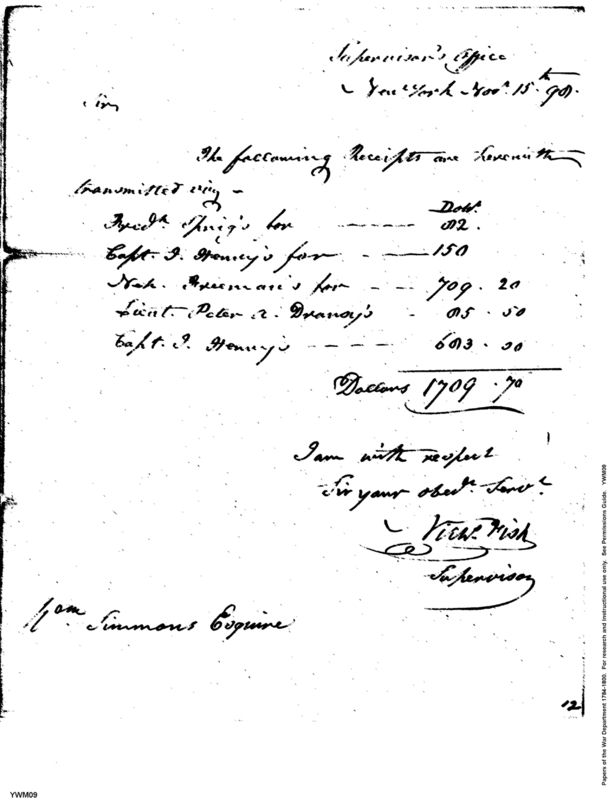 Supervisor's Office
New York Nov.r 15.th 98.
Sir
The following Receipts are herewith
transmitted viz
Dolls.
Fred.k Sprig's for 82.
Capt. J. Henry's for 150
Neh. Freeman's for 709. 20
Lieut. Peter Dransy's 85. 50
Capt. J. Henry's 683. 00
Dollars 1709.70
I am with respect
Sir your obed.t Serv.t
Fish
Supervisor
Simmons Esquire
12
YWM09
Papers of the War Department 1784-1800. For research and instructional use only. See Permissions Guide. YWM09